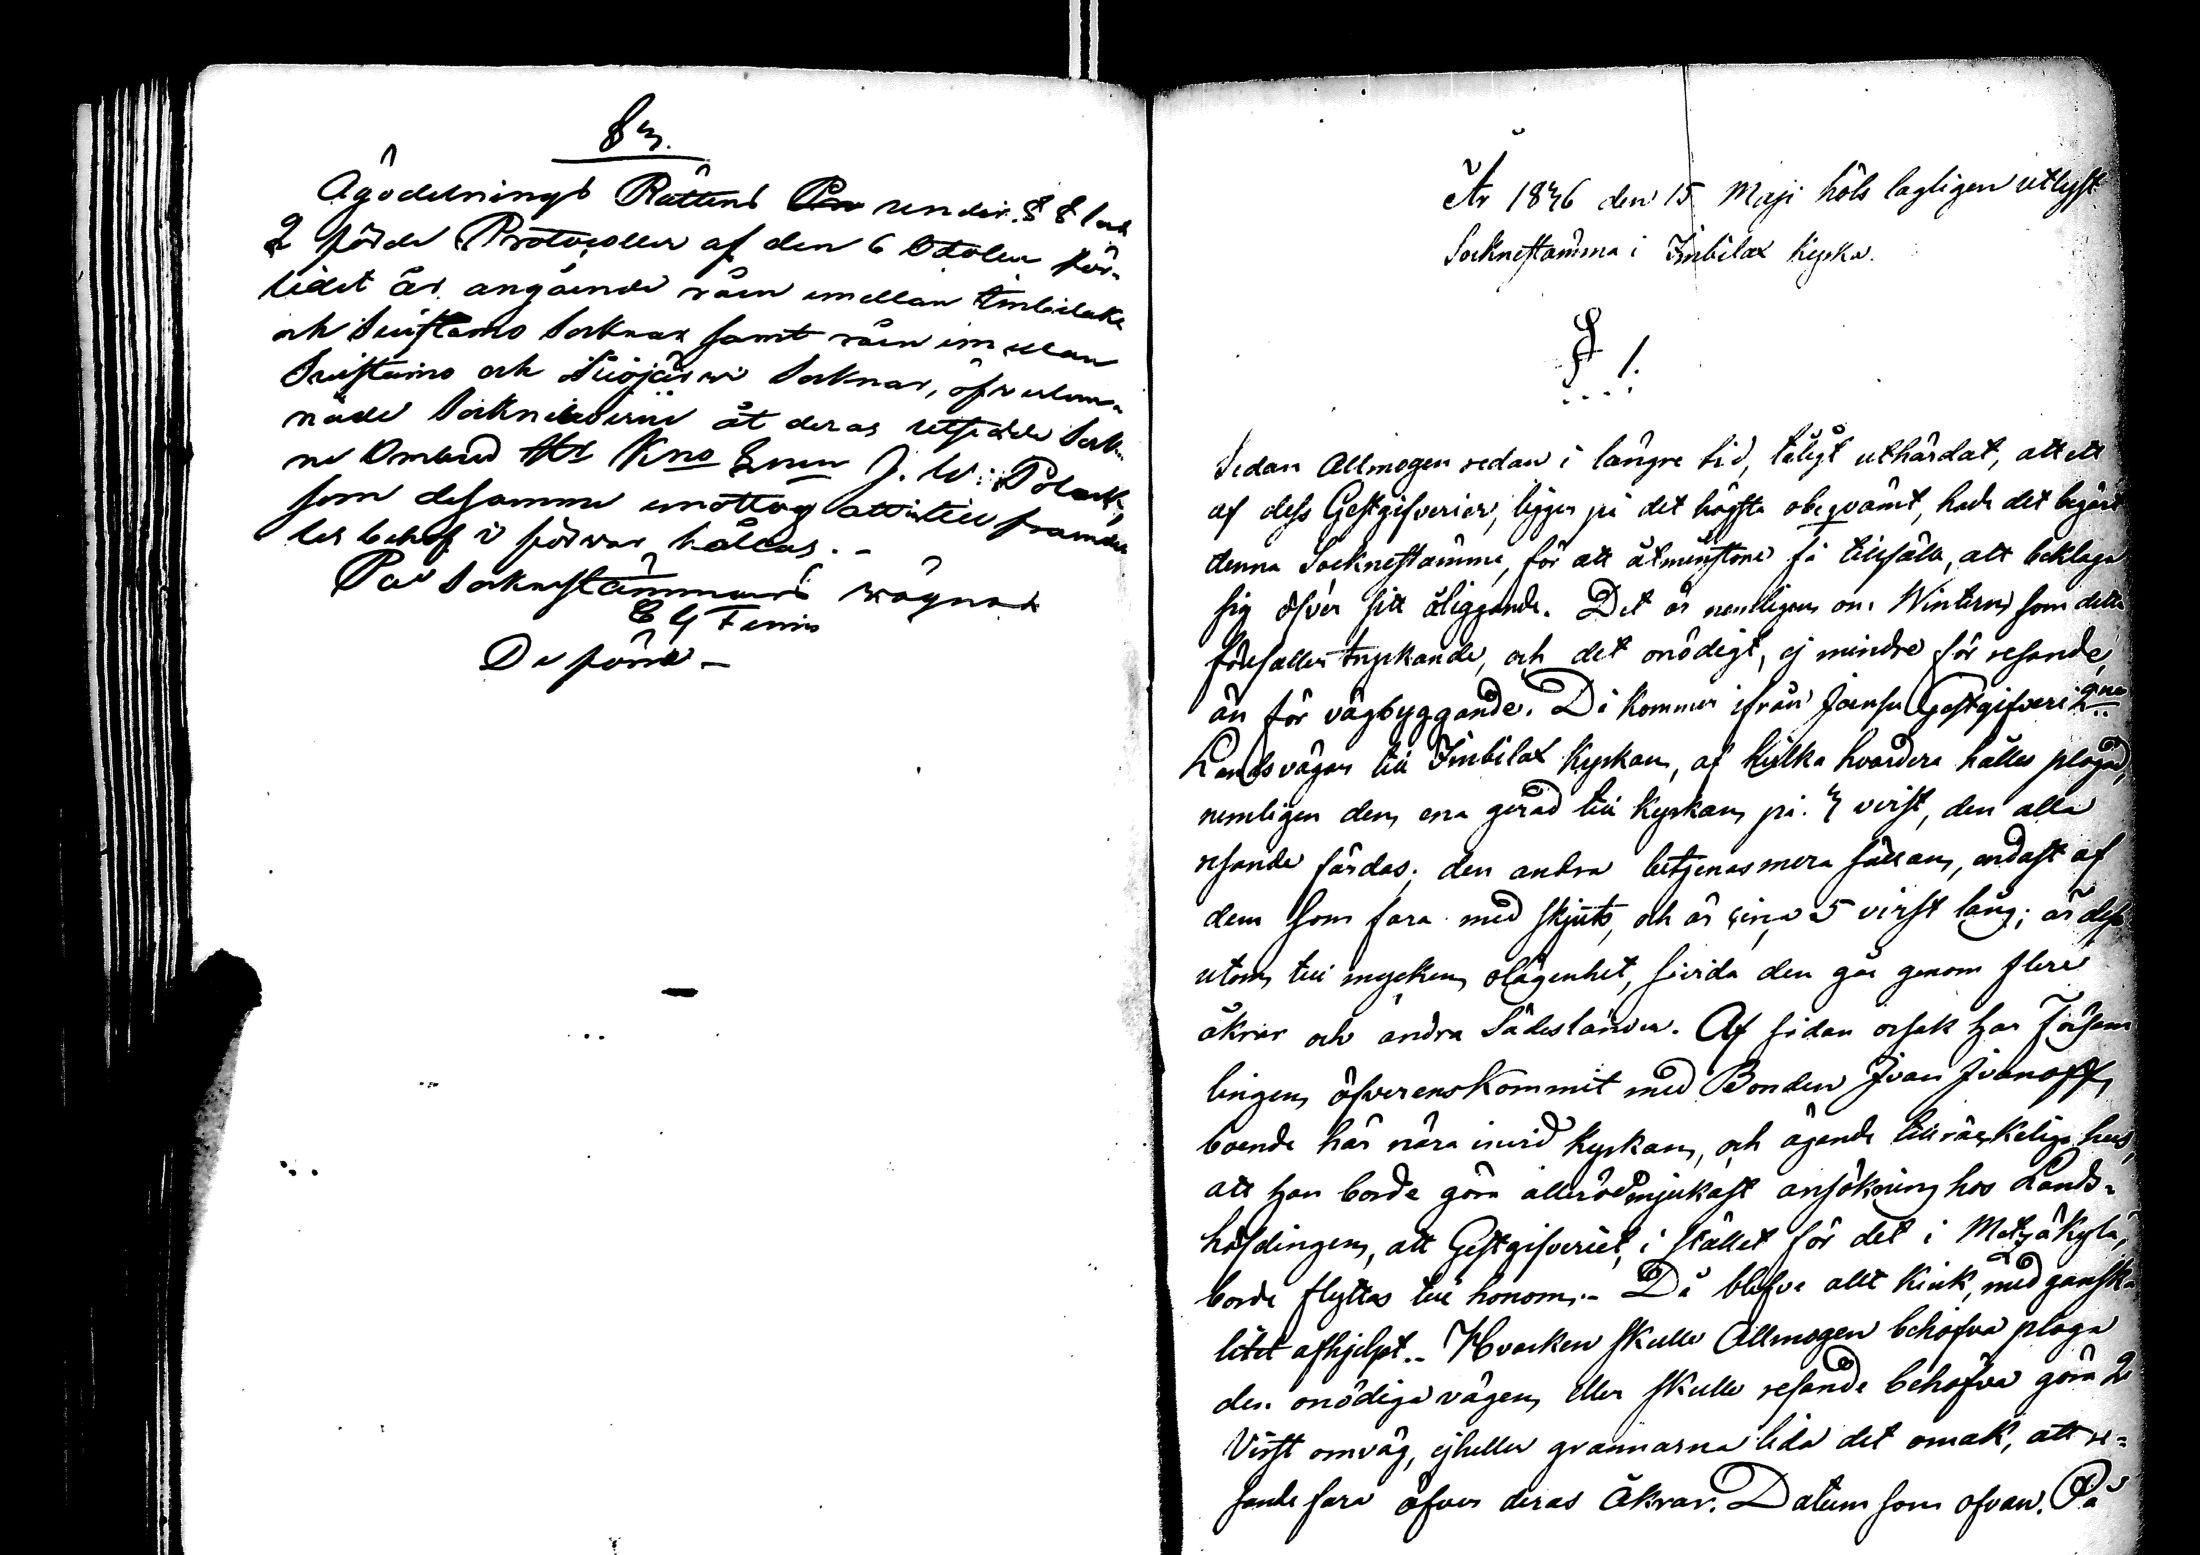 § 3.
Ägodelnings Rättens under § § 1 och
2 förde Protocoller af den 6 October för-
lidet år angående råen emellan Imbilaks
och Suistamo Socknar samt råen imellan
Suistamo och Suojärwi Socknar, öfwerlem-
nade åt deras utsedde Sock-
ne Ombud J. W. Polack,
som desamme emottog att till framde-
les behof i förwar hållas. -
På Sockenstämmans wägnar
E G Fenin
De förra -
År 1846 den 15 Maji höls lagligen utlyst
Socknestämma i Imbilax kyrka.
§ 1.
Sedan Allmogen redan i långre tid, tåligt uthärdat, att ett
af dess Gestgifverier, ligger på det högsta obeqvämt, hade det begärt
denna Socknestämma, för att åtminstone få tillfälle, att beklaga
sig öfver sitt åliggande. Det är nemligen om Wintern som detta
förefaller tryckande, och det onödigt, ej mindre för resande,
än för vägbyggande. Då kommer ifrån Joensu Gestgifveri 2ne
Landsvägar till Imbilax kyrkan, af hvilka hvardera hålles plogad,
nemligen den ena gerad till kyrkan på 4 virst, den alla
resande färdas; den andra betjenas mera sällan, endast af
dem som fara med skjuts, och är circa 5 virst lång; är dess
utom till mycken olägenhet, såvida den går genom flere
åkrar och andra Sädesländer. Af sådan orsak har Försam
lingen öfverenskommit med Bonden Ivan Ivanoff,
boende här nära invid kyrkan, och ägande tillräckeliga hus,
att han borde göra allerödmjukast ansökning hos Lands-
höfdingen, att Gestgifveriet, i stället för det i Matjäkylä,
borde flyttas till honom. - Då blefve allt kink, med ganska
litet afhjelpt. - Hvarken skulle Allmogen behöfva ploga
den onödiga vägen, eller skulle resande behöfva göra 2
Virst omväg, ejheller grannarna lida det omak, att re-
sande fara öfver deras Åkrar. Datum som ofvan. På